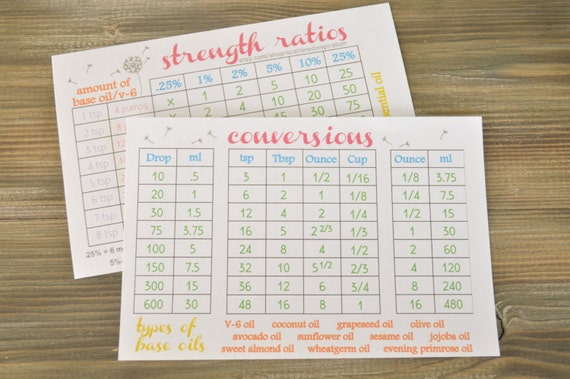 strength ratios
etsy.com/shop/scatteredinspiration
amount of
base oil/v-6
.25% 1% 2% 5% 10% 25%
1 tsp 4 pumps x 1 2 5 10 25
2 tsp 2 4 10 20 50
3 tsp 75
4 tsp
5 tsp
6 tsp
7 tsp
8 tsp
.25% = 6 m
5%
conversions
Drop ml
10 .5
20 1
30 1.5
75 3.75
100 5
150 7.5
300 15
600 30
tsp Tbsp Ounce Cup
3 1 1/2 1/16
6 2 1 1/8
12 4 2 1/4
16 5 2 2/3 1/3
24 8 4 1/2
32 10 5 1/2 2/3
36 12 6 3/4
48 16 8 1
Ounce ml
1/8 3.75
1/4 7.5
1/2 15
1 30
2 60
4 120
8 240
16 480
types of
base oils
V-6 oil coconut oil grapeseed oil olive oil
avocado oil sunflower oil sesame oil jojoba oil
sweet almond oil wheatgerm oil evening primrose oil